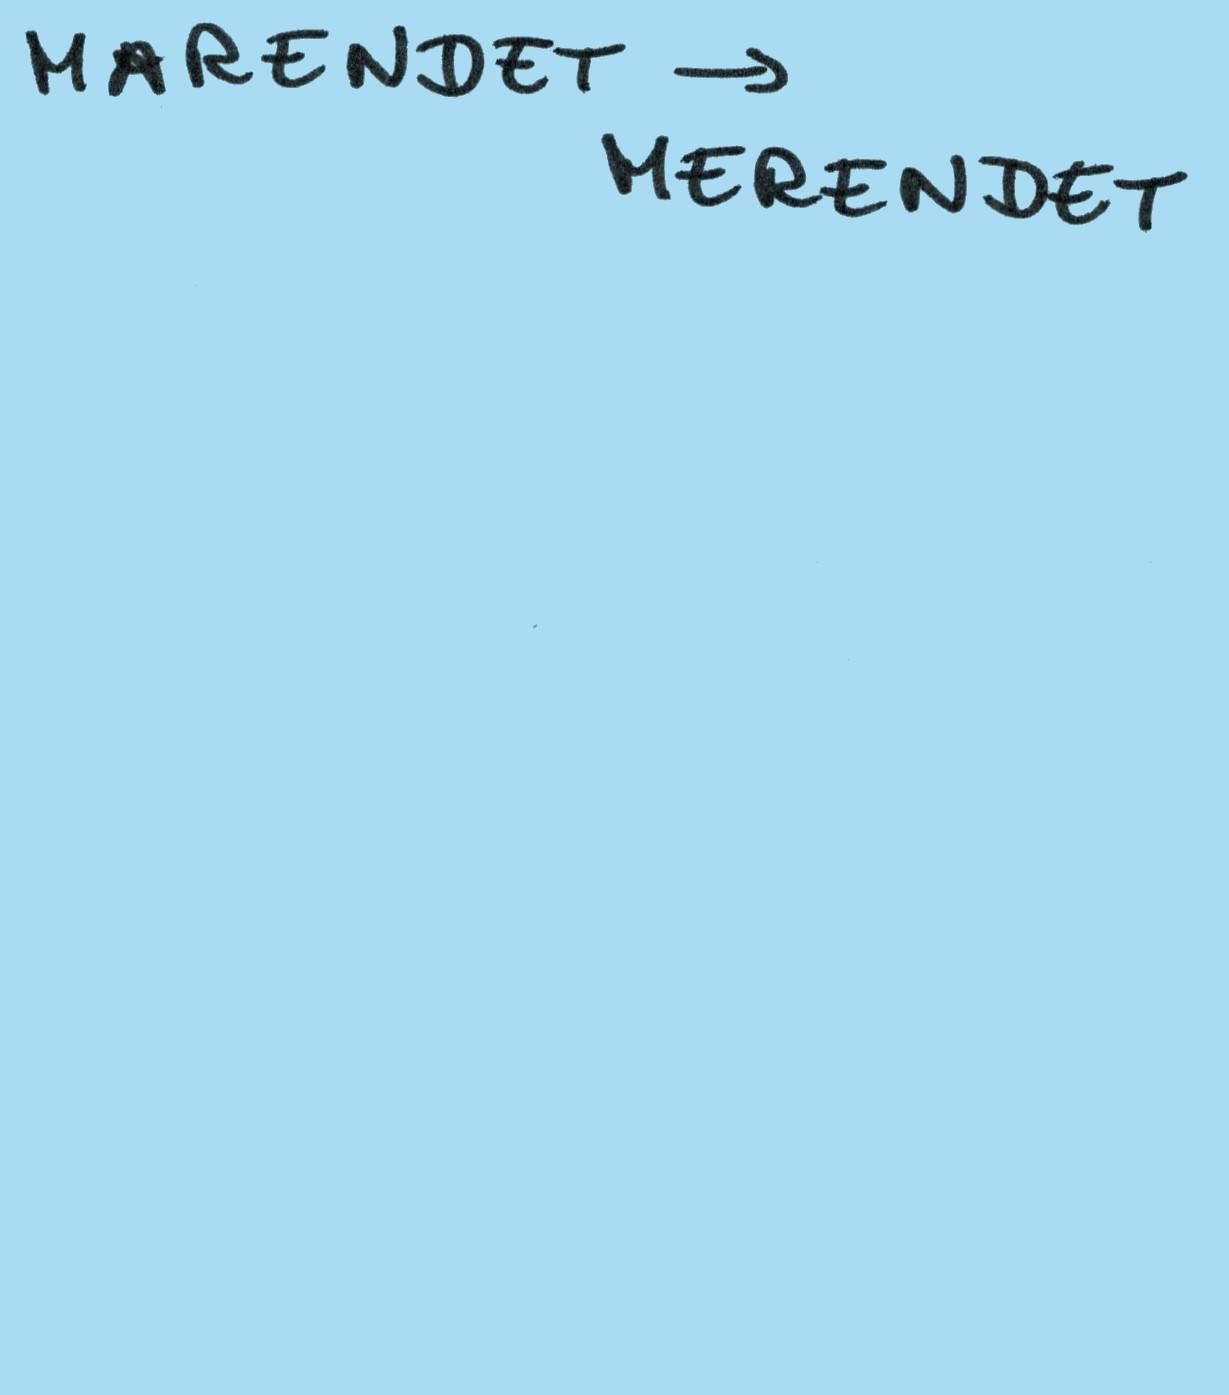 MARENDET →
MERENDET